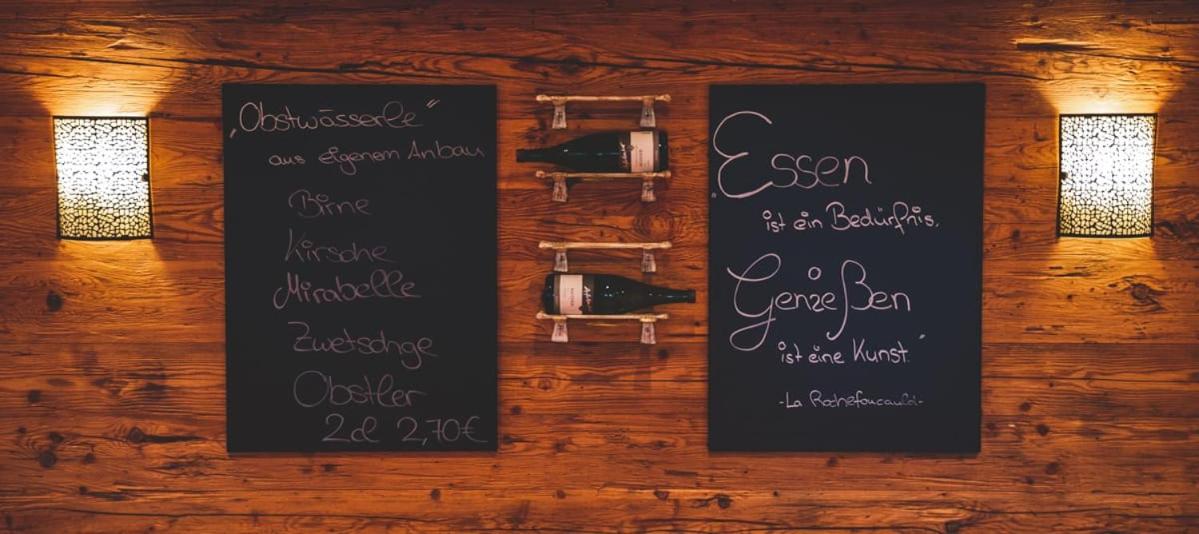 „Obstwässerle“
aus eigenem Anbau
Birne
Kirsche
Mirabelle
Zwetschge
Obstler
2cl 2,70€
„Essen
ist ein Bedürfnis,
Genießen
ist eine Kunst“
-La Rochefoucauld-